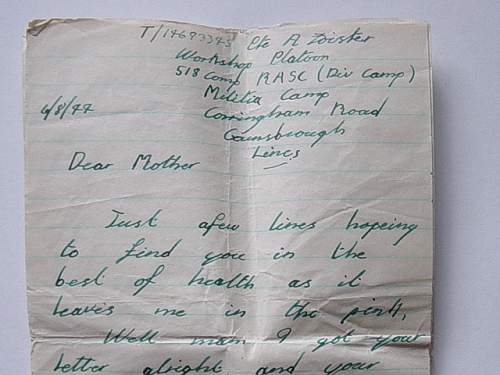 T/14693343 Pte A Loister
Workshop Platoon
518 Comp RASC (Div Camp)
Militia Camp
6/8/44 Corringham Road
Gainsbrough
Lincs
Dear Mother
Just afew lines hopeing
to find you in the
best of health as it
leaves me in the pink,
Well mam I got your
letter alright and your